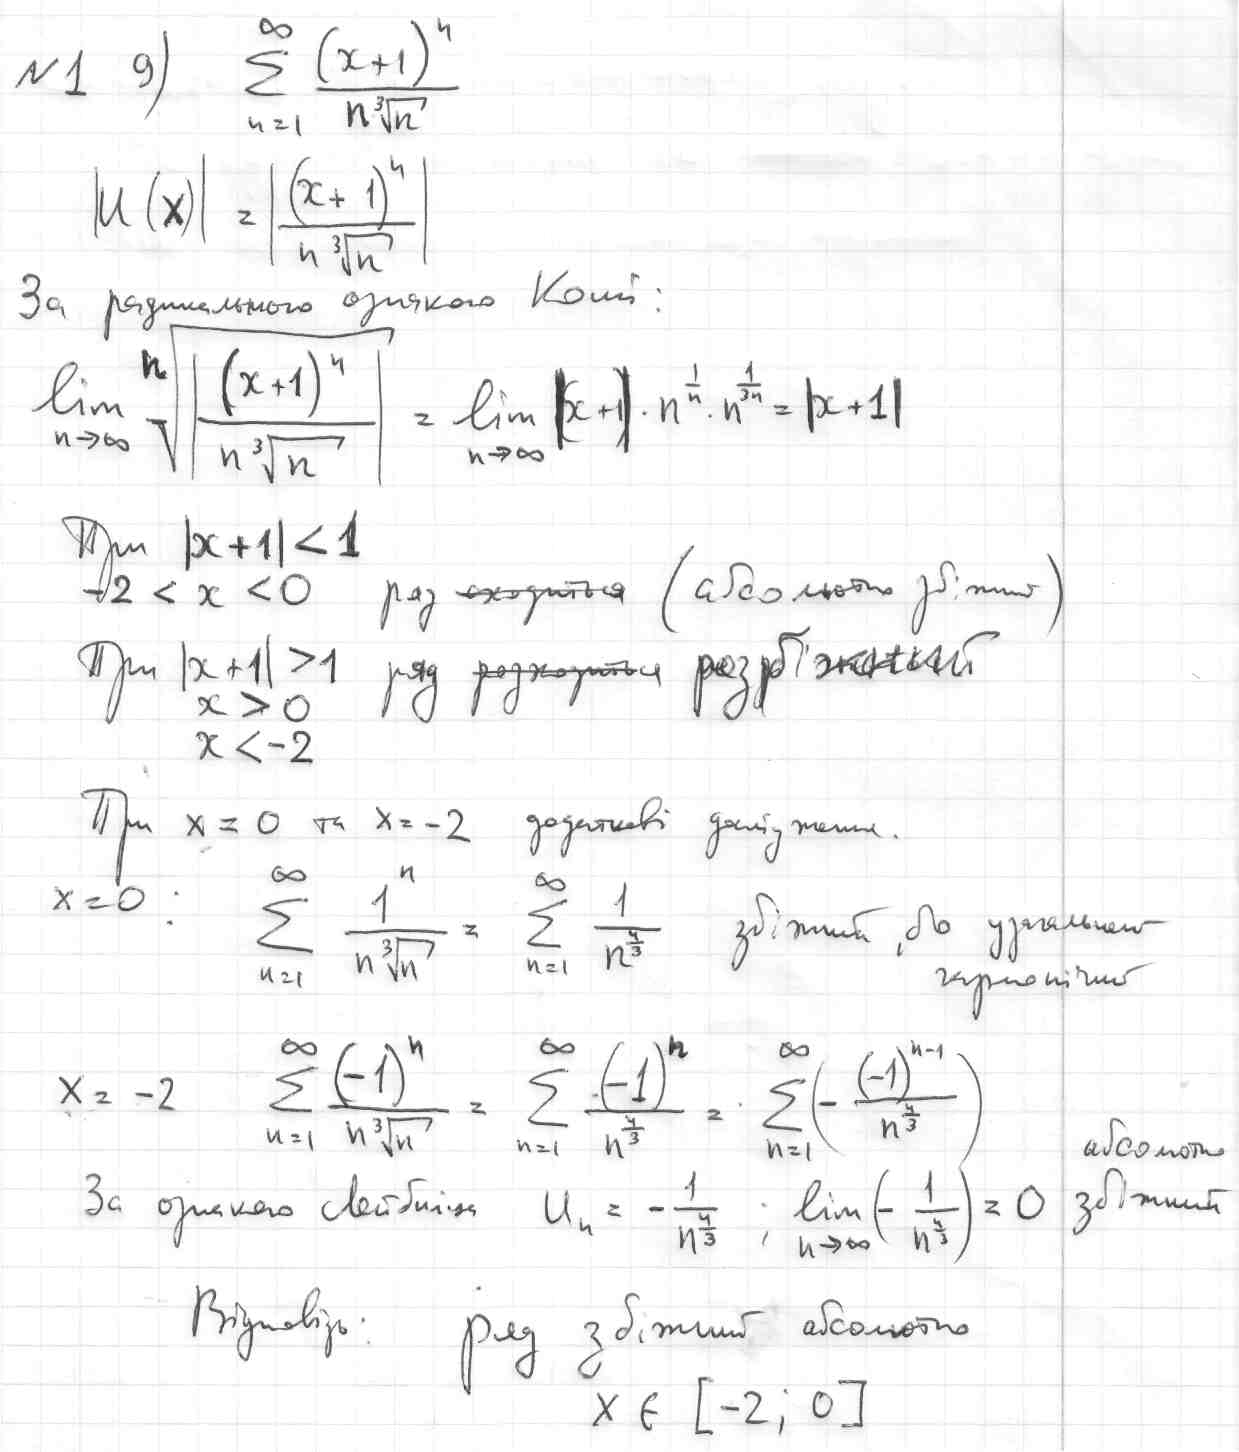 №1 9) $\sum_{n=1}^{\infty} \frac{(x+1)^n}{n\sqrt[3]{n}}$
$|U(x)| = \left|\frac{(x+1)^n}{n\sqrt[3]{n}}\right|$
За радикальною ознакою Коші:
$\lim_{n\to\infty} \sqrt[n]{\left|\frac{(x+1)^n}{n\sqrt[3]{n}}\right|} = \lim_{n\to\infty} |x+1| \cdot n^{\frac{1}{n}} \cdot n^{\frac{1}{3n}} = |x+1|$
При |x+1| < 1
-2 < x < 0 ряд ~~сходиться~~ (абсолютно збіжний)
При |x+1| > 1 ряд ~~розходиться~~ розрбіжний
x > 0
x < -2
При x = 0 та x = -2 додаткові дослідження.
x = 0 : $\sum_{n=1}^{\infty} \frac{1^n}{n\sqrt[3]{n}} = \sum_{n=1}^{\infty} \frac{1}{n^{\frac{4}{3}}}$ збіжний, бо узагальнений
гармонічний
x = -2 $\sum_{n=1}^{\infty} \frac{(-1)^n}{n\sqrt[3]{n}} = \sum_{n=1}^{\infty} \frac{(-1)^n}{n^{\frac{4}{3}}} = \sum_{n=1}^{\infty} \left(-\frac{(-1)^{n-1}}{n^{\frac{4}{3}}}\right)$
За ознакою Лейбніца $U_n = -\frac{1}{n^{\frac{4}{3}}}$ ; $\lim_{n\to\infty} \left(-\frac{1}{n^{\frac{4}{3}}}\right) = 0$ абсолютно збіжний
Відповідь: ряд збіжний абсолютно
x ∈ [-2; 0]